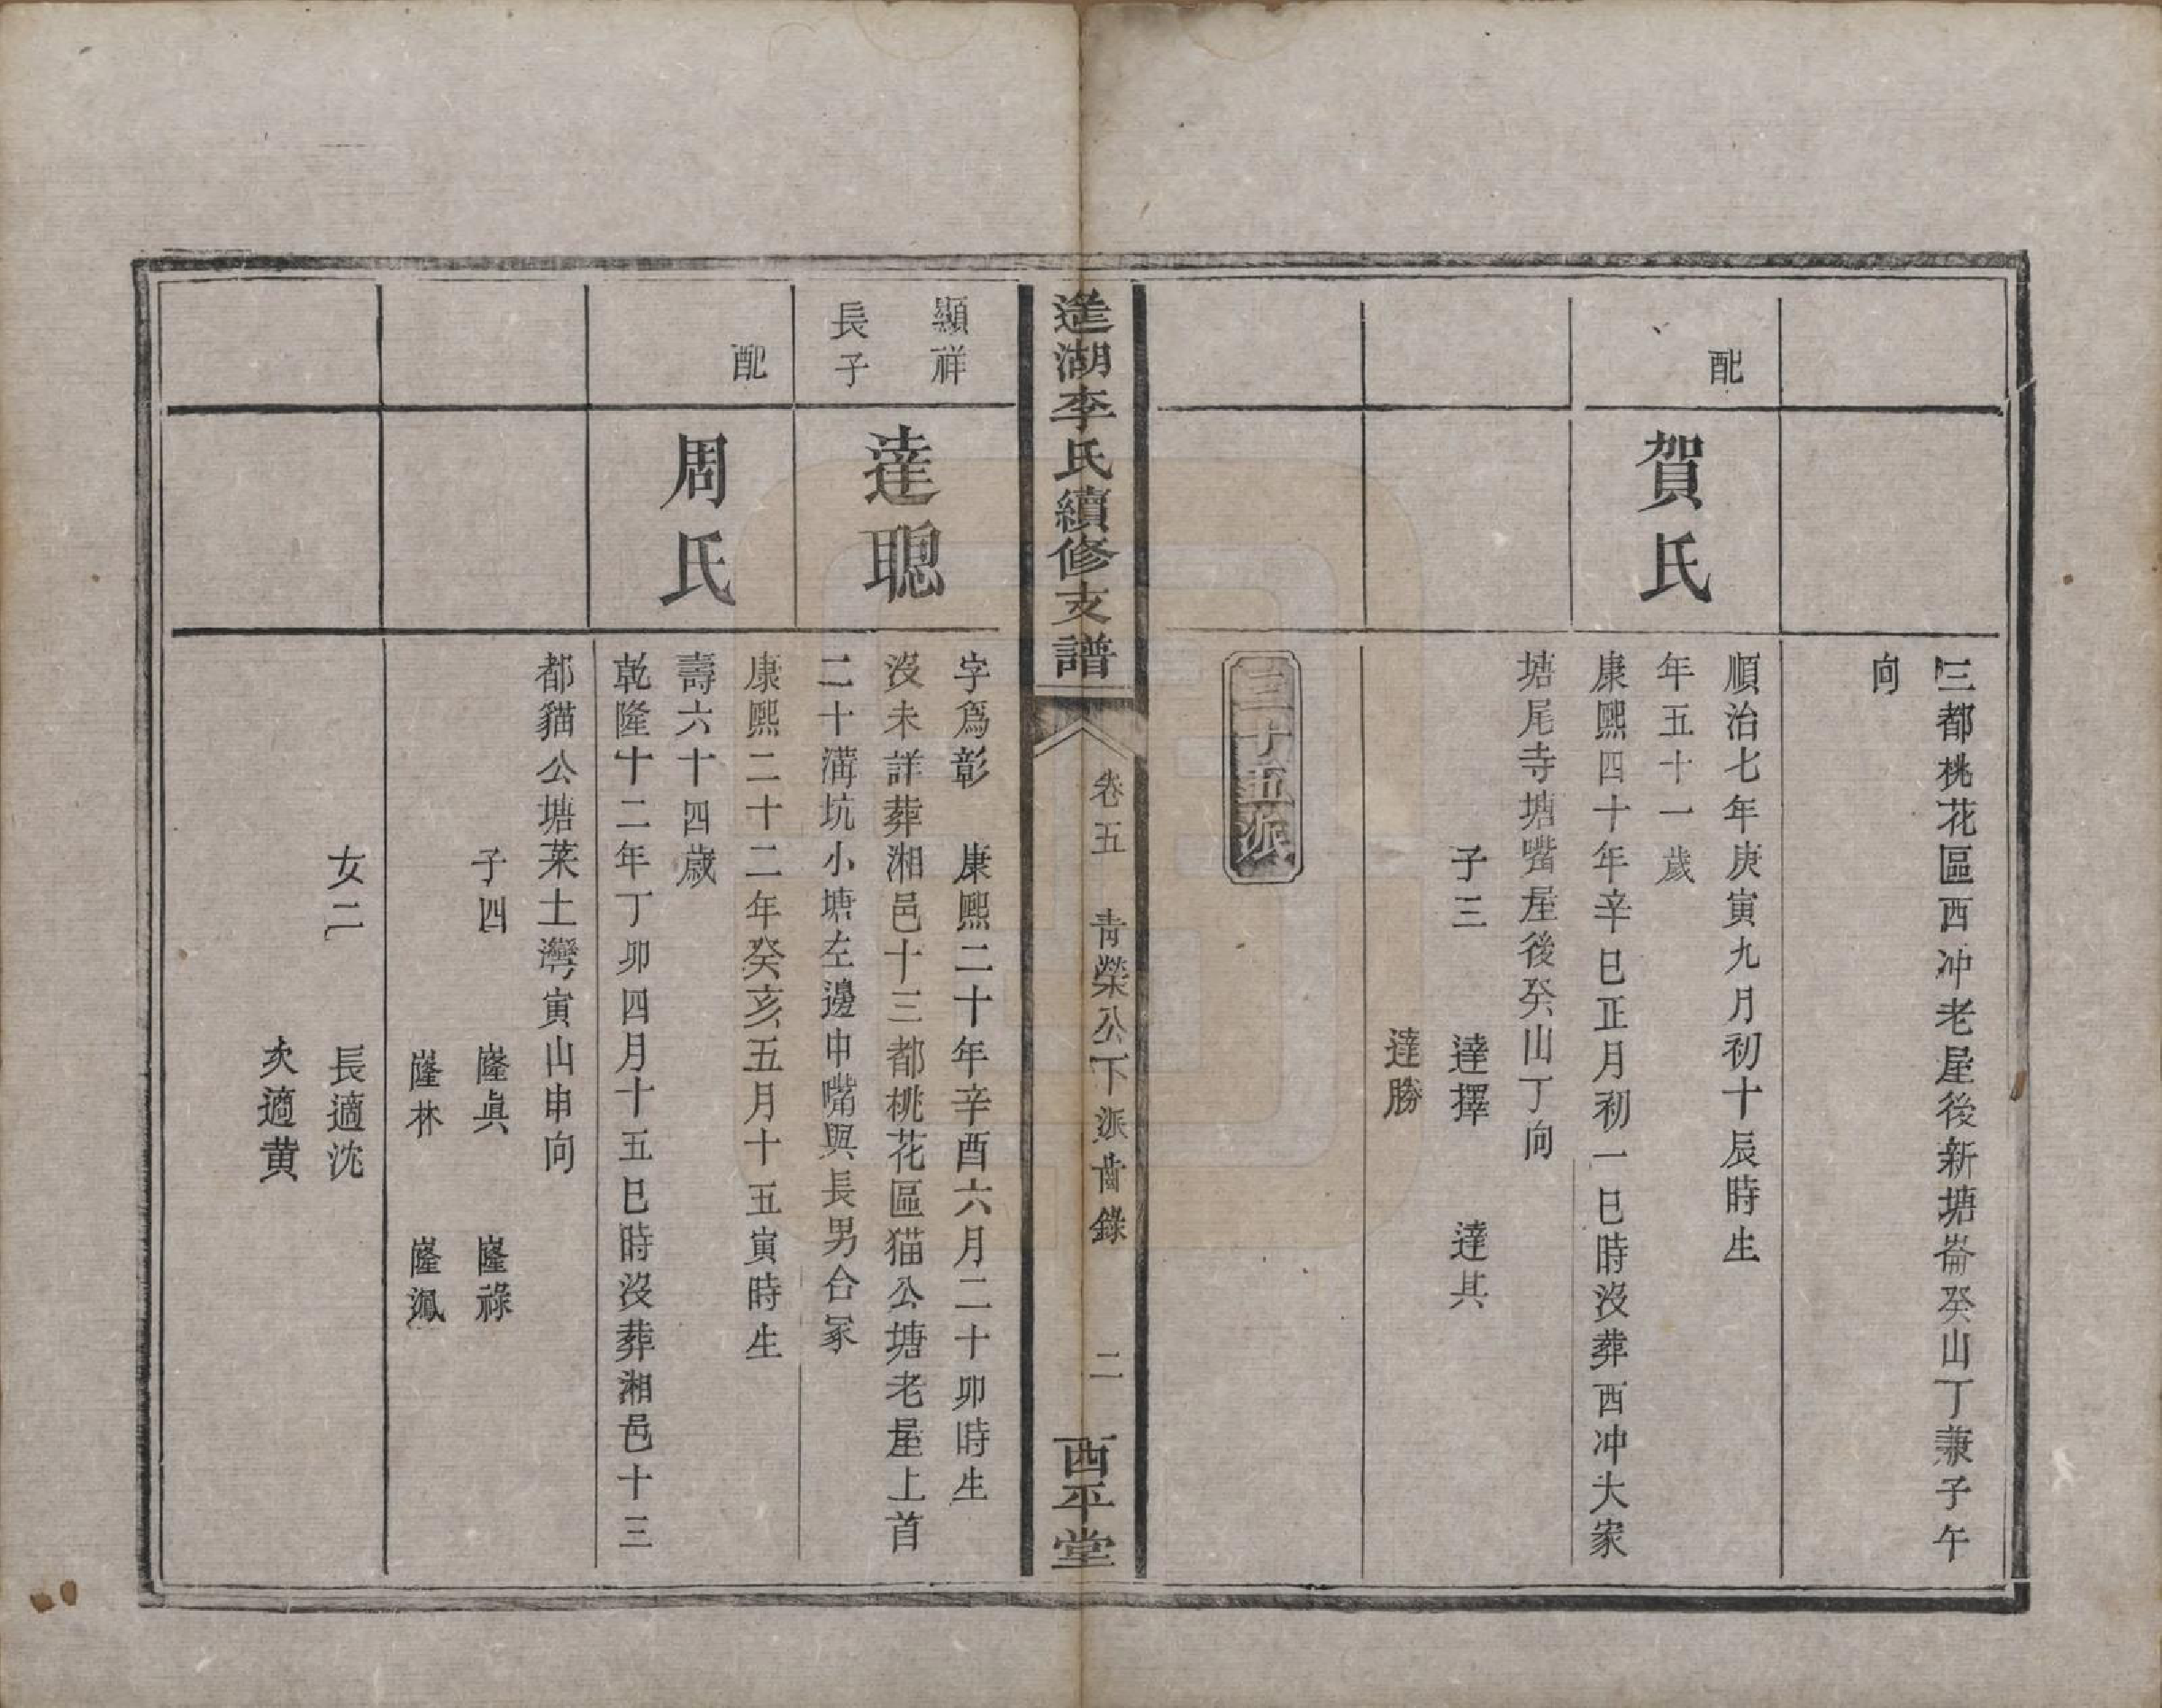 三都桃花區西冲老屋後新塘崙癸山丁兼子午
向
配
賀氏
順治七年庚寅九月初十辰時生
年五十一歲
康熙四十年辛巳正月初一巳時沒葬西冲大冢
塘尾寺塘嘴屋後癸山丁向
子三　達擇　達其
達勝
三十五派
湴湖李氏續修支譜
卷五　青榮公下派齒錄　二
西平堂
顯祥
長子
達聰
字爲彰　康熙二十年辛酉六月二十卯時生
沒未詳葬湘邑十三都桃花區猫公塘老屋上首
二十溝坑小塘左邊申嘴與長男合冢
配
周氏
康熙二十二年癸亥五月十五寅時生
壽六十四歲
乾隆十二年丁卯四月十五巳時沒葬湘邑十三
都貓公塘菜土灣寅山申向
子四　隆眞　隆祿
隆林　隆鳳
女二　長適沈
次適黃